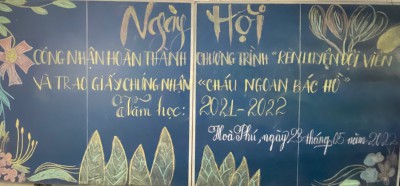 Ngày Hội
CÔNG NHẬN HOÀN THÀNH CHƯƠNG TRÌNH "RÈN LUYỆN ĐỘI VIÊN
VÀ TRAO GIẤY CHỨNG NHẬN «CHÁU NGOAN BÁC HỒ"
Năm học: 2021-2022
Hoà Phú, ngày 23 tháng 05 năm 2022